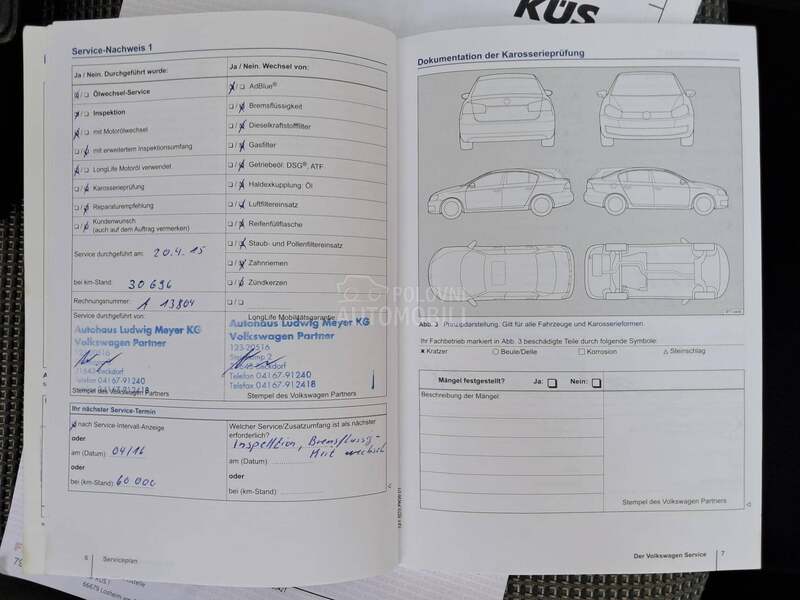 KÜS
Service-Nachweis 1
Ja / Nein. Durchgeführt wurde:
Ölwechsel-Service
Inspektion
mit Motorölwechsel
mit erweitertem Inspektionsumfang
LongLife Motoröl verwendet
Karosserieprüfung
Reparaturempfehlung
Kundenwunsch
(auch auf dem Auftrag vermerken)
Service durchgeführt am: 20.4.15
bei km-Stand: 30 696
Rechnungsnummer: A 13804
Service durchgeführt von:
Autohaus Ludwig Meyer KG
Volkswagen Partner
Telefon 04167-91240
Stempel des Volkswagen Partners
Ja / Nein. Wechsel von:
AdBlue®
Bremsflüssigkeit
Dieselkraftstofffilter
Gasfilter
Getriebeöl: DSG®, ATF
Haldexkupplung: Öl
Luftfiltereinsatz
Reifenfüllflasche
Staub- und Pollenfiltereinsatz
Zahnriemen
Zündkerzen
LongLife Mobilitätsgarantie
Autohaus Ludwig Meyer KG
Volkswagen Partner
Telefon 04167-91240
Telefax 04167-912418
Stempel des Volkswagen Partners
Ihr nächster Service-Termin
nach Service-Intervall-Anzeige
oder
am (Datum): 04/16
oder
bei (km-Stand): 60 000
Welcher Service/Zusatzumfang ist als nächster
erforderlich?
Inspektion, Bremsflüssig-
keit wechseln
am (Datum):
oder
bei (km-Stand):
6
Serviceplan
Dokumentation der Karosserieprüfung
Abb. 3 Prinzipdarstellung: Gilt für alle Fahrzeuge und Karosserieformen.
Ihr Fachbetrieb markiert in Abb. 3 beschädigte Teile durch folgende Symbole:
× Kratzer ○ Beule/Delle □ Korrosion △ Steinschlag
Mängel festgestellt? Ja: Nein:
Beschreibung der Mängel:
Stempel des Volkswagen Partners
Der Volkswagen Service
7
POLOVNI
AUTOMOBILI